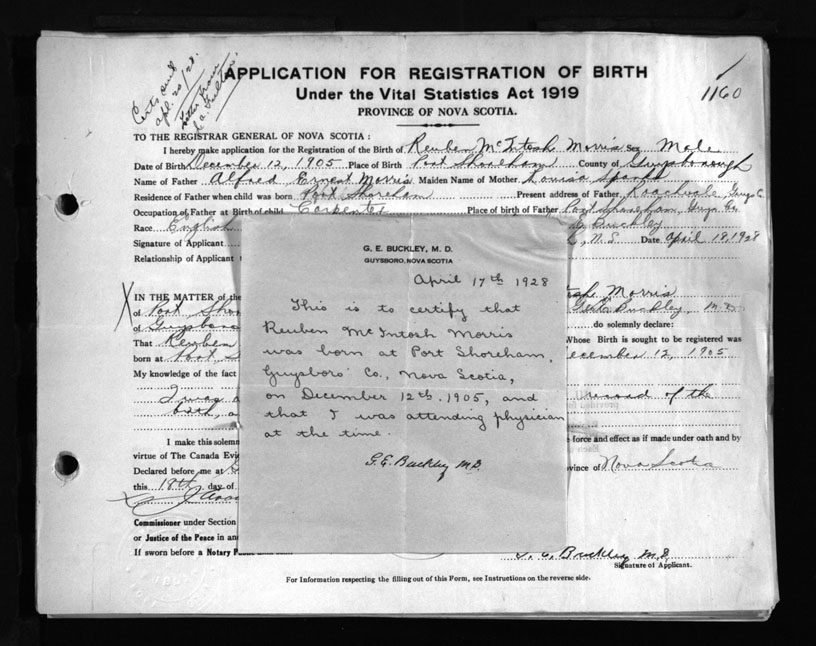 Certs sent
apl. 20/28.
APPLICATION FOR REGISTRATION OF BIRTH
Under the Vital Statistics Act 1919
PROVINCE OF NOVA SCOTIA.
1160
TO THE REGISTRAR GENERAL OF NOVA SCOTIA:
I hereby make application for the Registration of the Birth of Reuben McIntosh Morris Sex Male
Date of Birth December 12, 1905 Place of Birth Port Shoreham County of Guysborough
Name of Father Alfred Ernest Morris Maiden Name of Mother Louisa
Residence of Father when child was born Port Shoreham Present address of Father Roachvale, Guys Co
Occupation of Father at Birth of child Carpenter Place of birth of Father Port Shoreham, Guys Co
Race English Buckley
Signature of Applicant N.S. Date April 18, 1928
Relationship of Applicant
G. E. BUCKLEY, M. D.
GUYSBORO, NOVA SCOTIA
April 17th 1928
This is to certify that
Reuben McIntosh Morris
was born at Port Shoreham,
Guysboro Co., Nova Scotia,
on December 12th. 1905, and
that I was attending physician
at the time.
G. E. Buckley M.D.
IN THE MATTER of the Morris
of Port Buckley, M.D.
of do solemnly declare:
That Reuben Whose Birth is sought to be registered was
born at Port December 12, 1905
My knowledge of the fact
I was record of the
I make this solemn force and effect as if made under oath and by
virtue of The Canada Province of Nova Scotia
Declared before me at
this 18th day of
Commissioner under Section
or Justice of the Peace in
If sworn before a Notary
G. E. Buckley M.D.
Signature of Applicant.
For Information respecting the filling out of this Form, see Instructions on the reverse side.